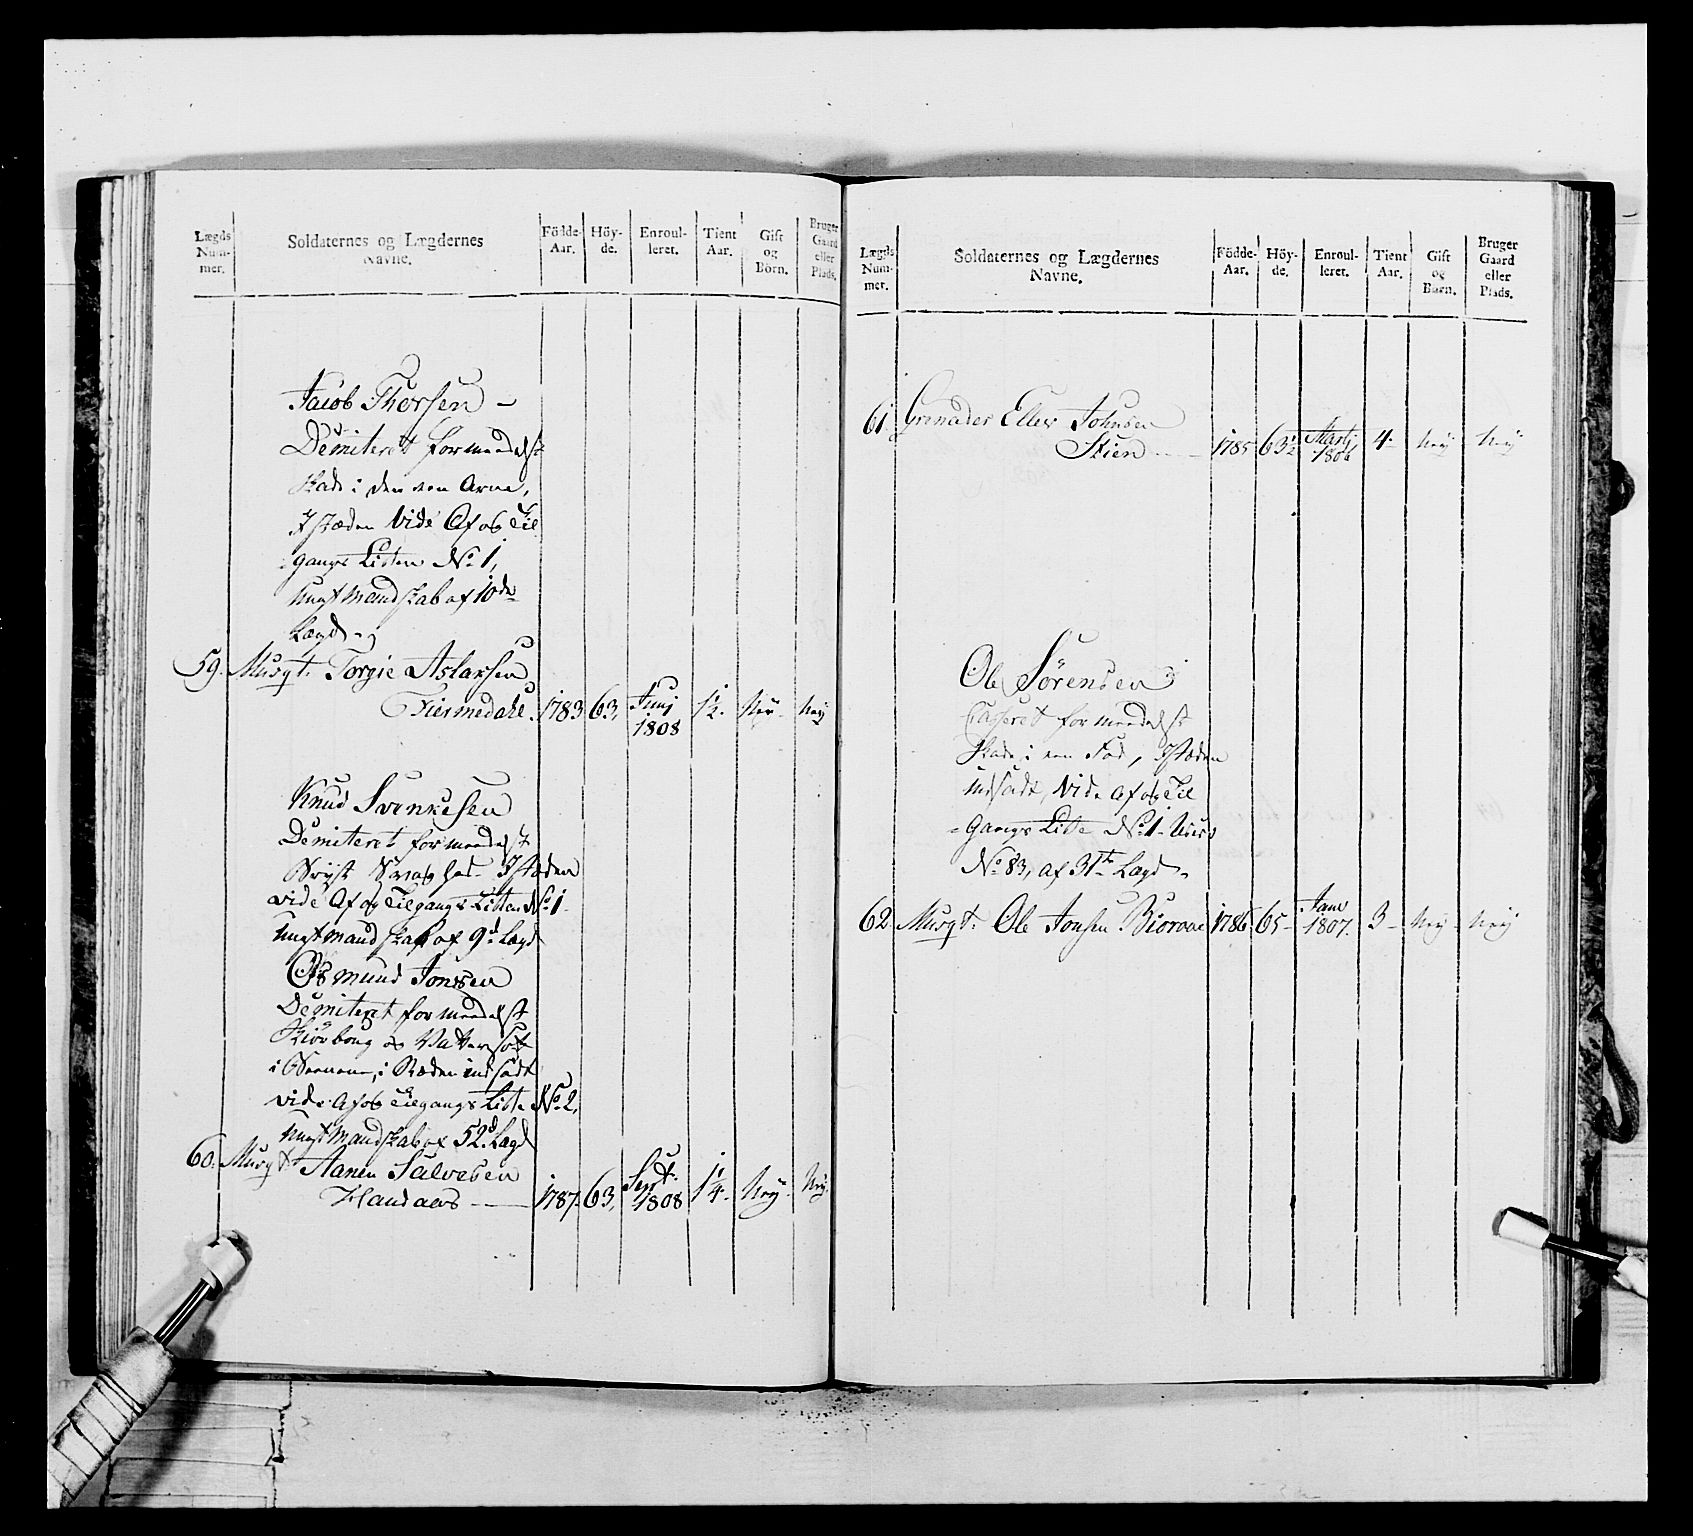 Lægds Num- mer.
Soldaternes og Lægdernes Navne.
Födde- Aar.
Höy- de.
Enroul- leret.
Tient Aar.
Gift og Börn.
Bruger Gaard eller Plads.
Jacob Thorsen –
Demiteret formedelst
skade i den een Arm,
Istæden vide Af og Til
gangs Listen No 1,
Ungt Mandskab af 10de
Lægd –
59. Musqt. Torgie Aslaksen
Fiermedahl. 1783 63, Junj 1808 1½. Ney. Ney
Knud Svenkesen
Demiteret formedelst
Bryst Svaghed – Istæden
vide Af og Tilgangs Listen No 1
Ungt Mandskab af 9d Lægd
Osmund Jonsen
Demiteret formedelst
Skiørboug og Vattersot
i Beenene, i Stæden indsadt
vide Af og Tilgangs Liste No 2,
Ungt Mandskab af 52d Lægd
60. Musqt Aanen Salvesen
Haudaas 1787. 63, Sept. 1808 1¼. Ney. Ney.
Lægds Num- mer.
Soldaternes og Lægdernes Navne.
Födde- Aar.
Höy- de.
Enroul- leret.
Tient Aar.
Gift og Børn.
Bruger Gaard eller Plads.
61. Grenader Ellev Johnsen
Stien 1785 63½ Martj 1806 4 – Ney Ney
Ole Sörensen
Caseret formedelst
Skade i een Fod, Istæden
indsadt, vide Af og Til
gangs Liste No 1
No 83, af 31te Lægd.
62 Musqt. Ole Jonsen Bioraae 1786 65 – Janv 1807. 3 – Ney – Ney